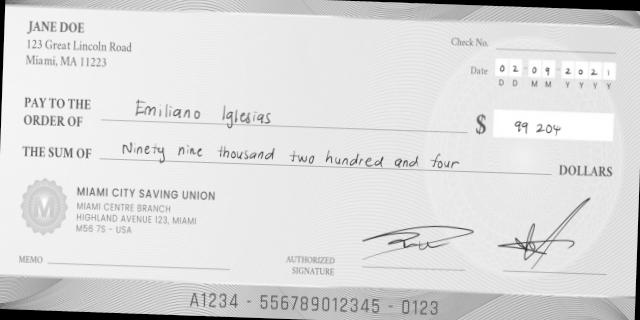 JANE DOE
123 Great Lincoln Road
Miami, MA 11223
Check No.
Date 02-09-2021
D D M M Y Y Y Y
PAY TO THE
ORDER OF Emiliano Iglesias $ 99 204
THE SUM OF Ninety nine thousand two hundred and four DOLLARS
M
MIAMI CITY SAVING UNION
MIAMI CENTRE BRANCH
HIGHLAND AVENUE 123, MIAMI
M56 7S - USA
MEMO
AUTHORIZED
SIGNATURE
A1234 - 556789012345 - 0123